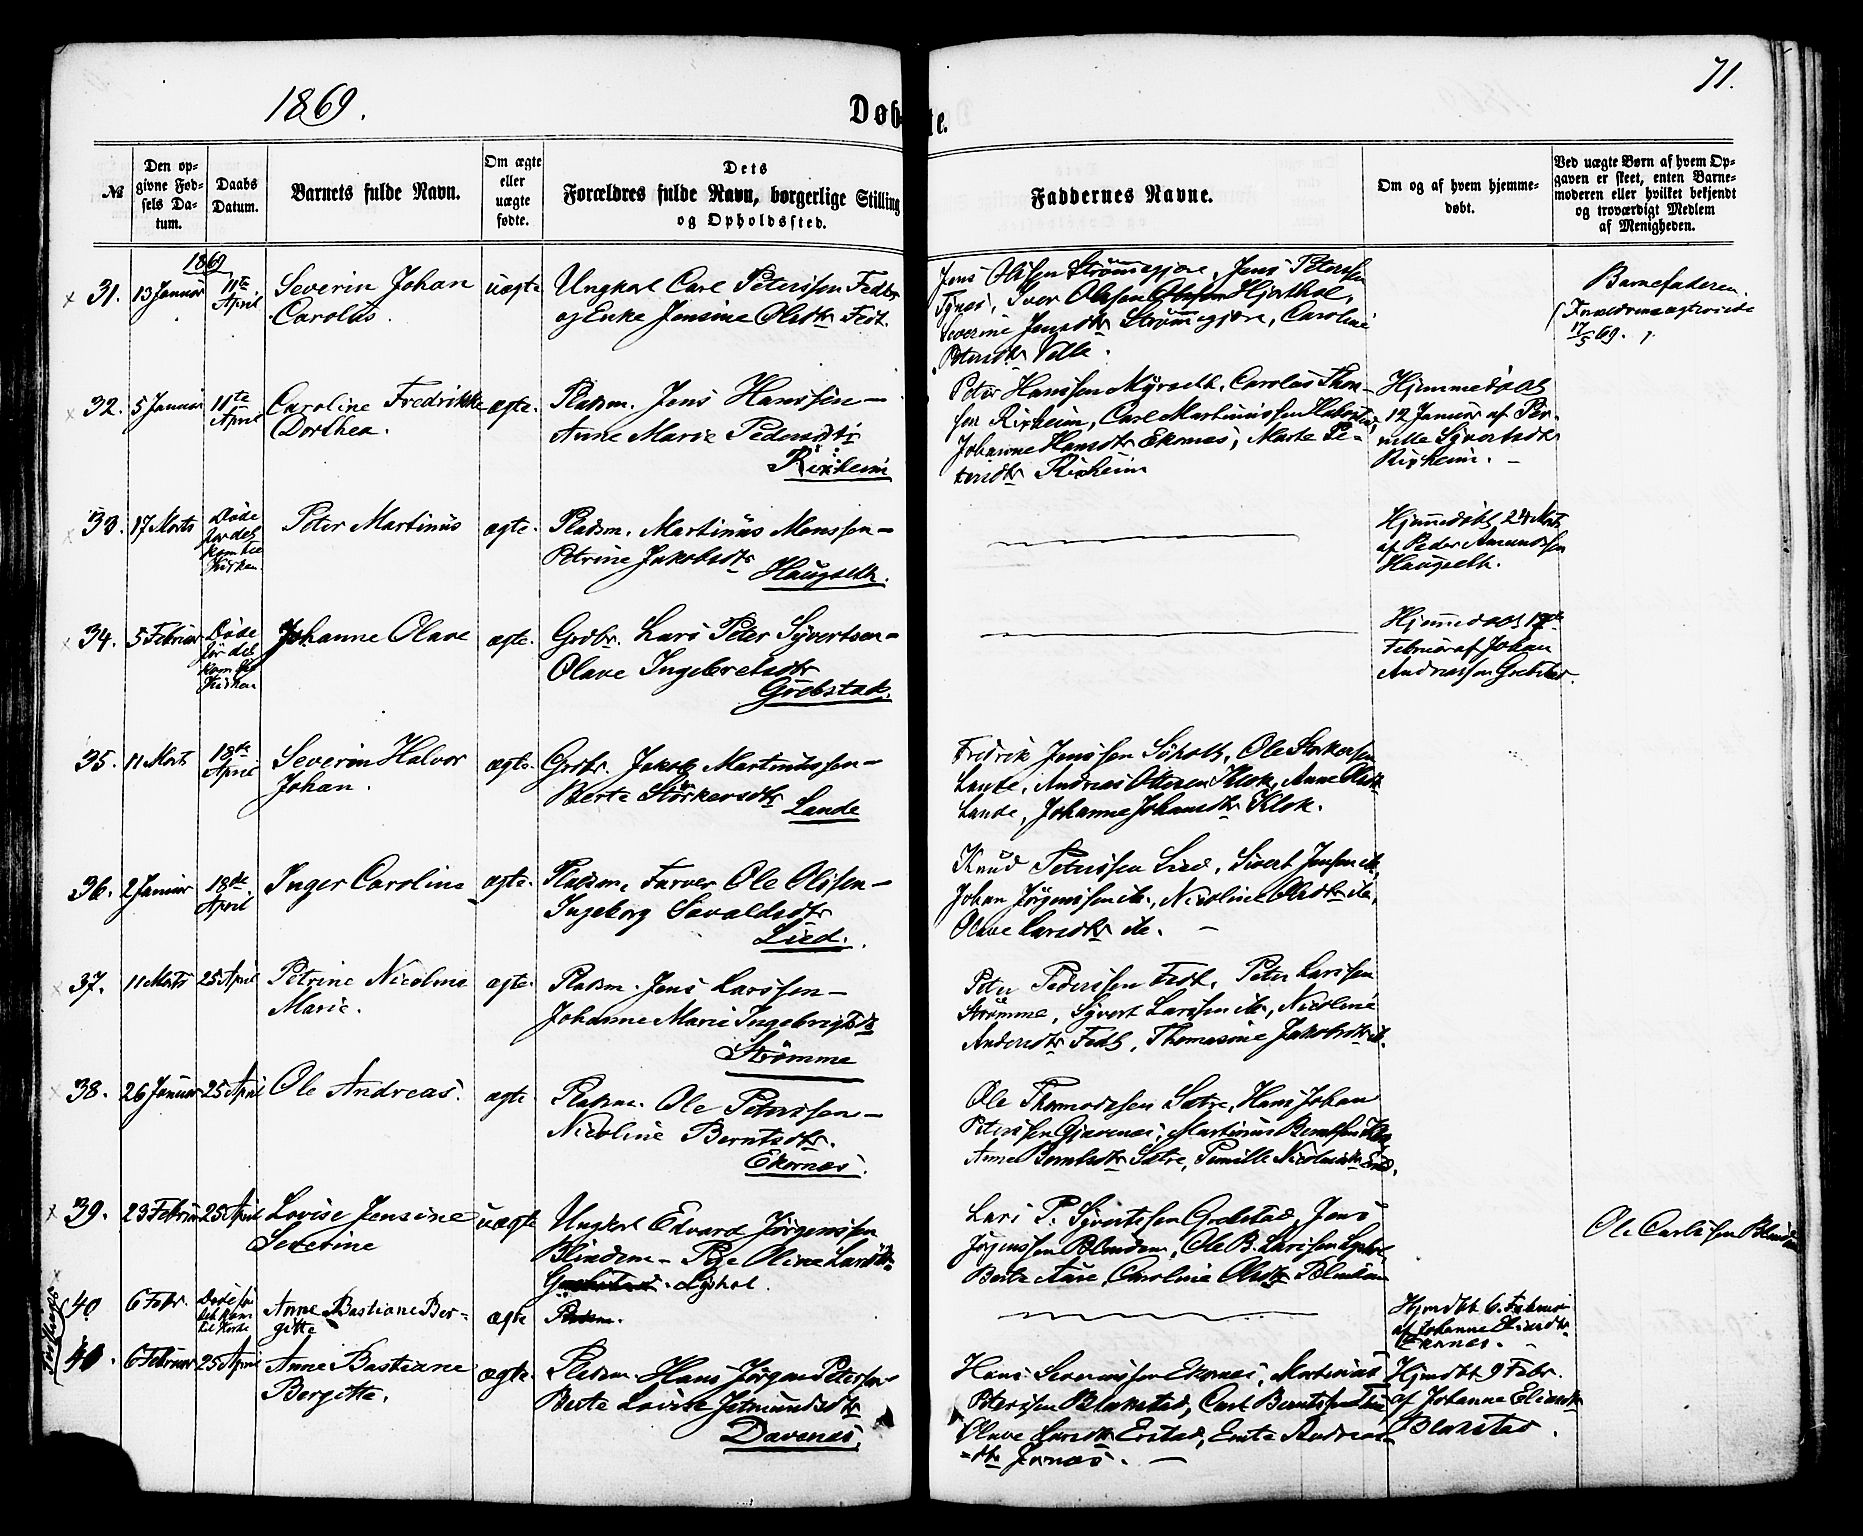 1869.
Døbte.
71.
№
Den opgivne Fødsels Datum.
Daabs Datum.
Barnets fulde Navn.
Om ægte eller uægte fødte.
Dets Forældres fulde Navn, borgerlige Stilling og Opholdssted.
Faddernes Navne.
Om og af hvem hjemmedøbt.
Ved uægte Børn af hvem Opgaven er skeet, enten Barnemoderen eller hvilket bekjendt og troværdigt Medlem af Menigheden.
1869
31. 13 Januar 11te April
Severin Johan
Carolus.
uægte
Ungkarl Carl Peterssen Fedt
og Enke Jensine Olsdtr Fedt.
Jens Olssen Strømmegjære, Jens Peterssen
Tynes, Iver Olssen Hjorthol,
Severine Jensdtr Strømmegjære, Caroline
Petersdtr Velle.
Barnefaderen.
17/5 69.
32. 5 Januar 11te April
Caroline Fredrikke
Dorthea.
ægte.
Pladsm. Jens Hanssen –
Anne Marie Pedersdtr
Rixheim
Peter Hanssen Myrseth, Carolus Thom-
sen Rixheim, Carl Martinussen
Johanne Hansdtr Ekornes, Marte Pe-
tersdtr Rixheim
Hjemmedøbt
12 Januar af Per-
nille Syvertsdtr
Rixheim. –
33. 17 Marts
Døde
før det
kom til
Kirken
Peter Martinus
ægte.
Pladsm. Martinus Monssen –
Petrine Jakobsdtr
Haugseth.
Hjemmedøbt 24 Mrts
af Peder Amundssen
Haugseth.
34. 5 Februar
Døde
før det
kom til
Kirken
Johanne Olave
ægte.
Grdbr. Lars Peter Syvertsen –
Olave Ingebretsdtr
Grebstad.
Hjemmedøbt
Februar af Johan
Andreassen Grebstad.
35. 11 Marts 18de April
Severin Halvor
Johan.
ægte.
Grdbr. Jakob Martinussen –
Berte Størkersdtr
Lande
Fredrik Jenssen Søholt, Ole Størkersen
Lande, Andreas Ottesen Klok, Anne Olsdtr
Lande, Johanne Johansdtr Klok.
36. 2 Januar 18de April
Inger Caroline
ægte.
Pladsm. Farver Ole Olssen –
Ingeborg Savaldsdtr
Lied.
Knud Peterssen Lied, Sivert Jenssen ib.,
Johan Jørgenssen ib., Nicoline Olsdtr ib.,
Olave Larsdtr ib. –
37. 11 Marts 25 April
Petrine Nicoline
Marie.
ægte.
Pladsm. Jens Larssen –
Johanne Marie Ingebrigtsdtr
Strømme
Peter Pederssen Fedt, Peter Larssen
Strømme, Syvert Larssen ib., Nicoline
Andersdtr Fedt, Thomasine Jakobsdtr ib.
38. 26 Januar 25 April
Ole Andreas.
ægte
Pladsm. Ole Peterssen –
Nicoline Berntsdtr.
Ekornes.
Ole Thormodssen Sætre, Hans Johan
Peterssen Gjævenes, Martinus Berntssen
Anne Berntsdtr Sætre, Pernille Nicolaisdtr
39. 23 Februar 25 April
Lovise Jensine
Severine
uægte
Ungkarl Edvard Jørgenssen
Blindem – Pige Oline Larsdtr
Lyshol.
Lars P. Syvertssen Grebstad, Jens
Jørgenssen Blindem, Ole B. Larssen Lyshol,
Berte Aure, Caroline Olsdtr Blindem
Ole Carlssen Blindem
40 6 Febr.
Døde før
det kom
til Kirke
Anne Bastiane Ber-
gitte
ægte
Pladsm.
Hjmdbt 6. Februar
af Johanne Eliasdtr
Ekornes. –
40. 6 Februar 25 April
Anne Bastiane
Bergitte.
ægte.
Pladsm. Hans Jørgen Petersen –
Berte Lovise Jetmundsdtr
Davenes.
Hans Severinssen Ekornes, Martinus
Peterssen Blakstad, Carl Berntssen
Olave Larsdtr Erstad, Andreas-
dtr Jernæs. –
Hjmdbt 9 Febr.
af Johanne Eliasdtr
Blakstad.